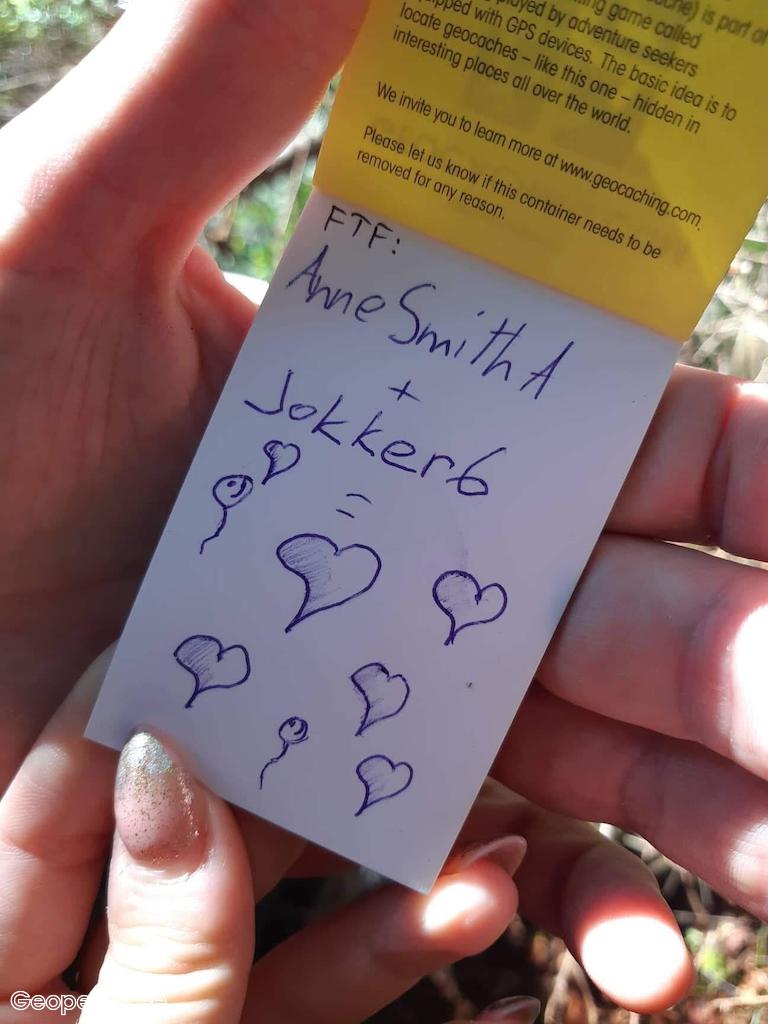 is part of
ing game called
played by adventure seekers
equipped with GPS devices. The basic idea is to
locate geocaches – like this one – hidden in
interesting places all over the world.
We invite you to learn more at www.geocaching.com.
Please let us know if this container needs to be
removed for any reason.
FTF:
Anne Smith A
+
Jokker6
=